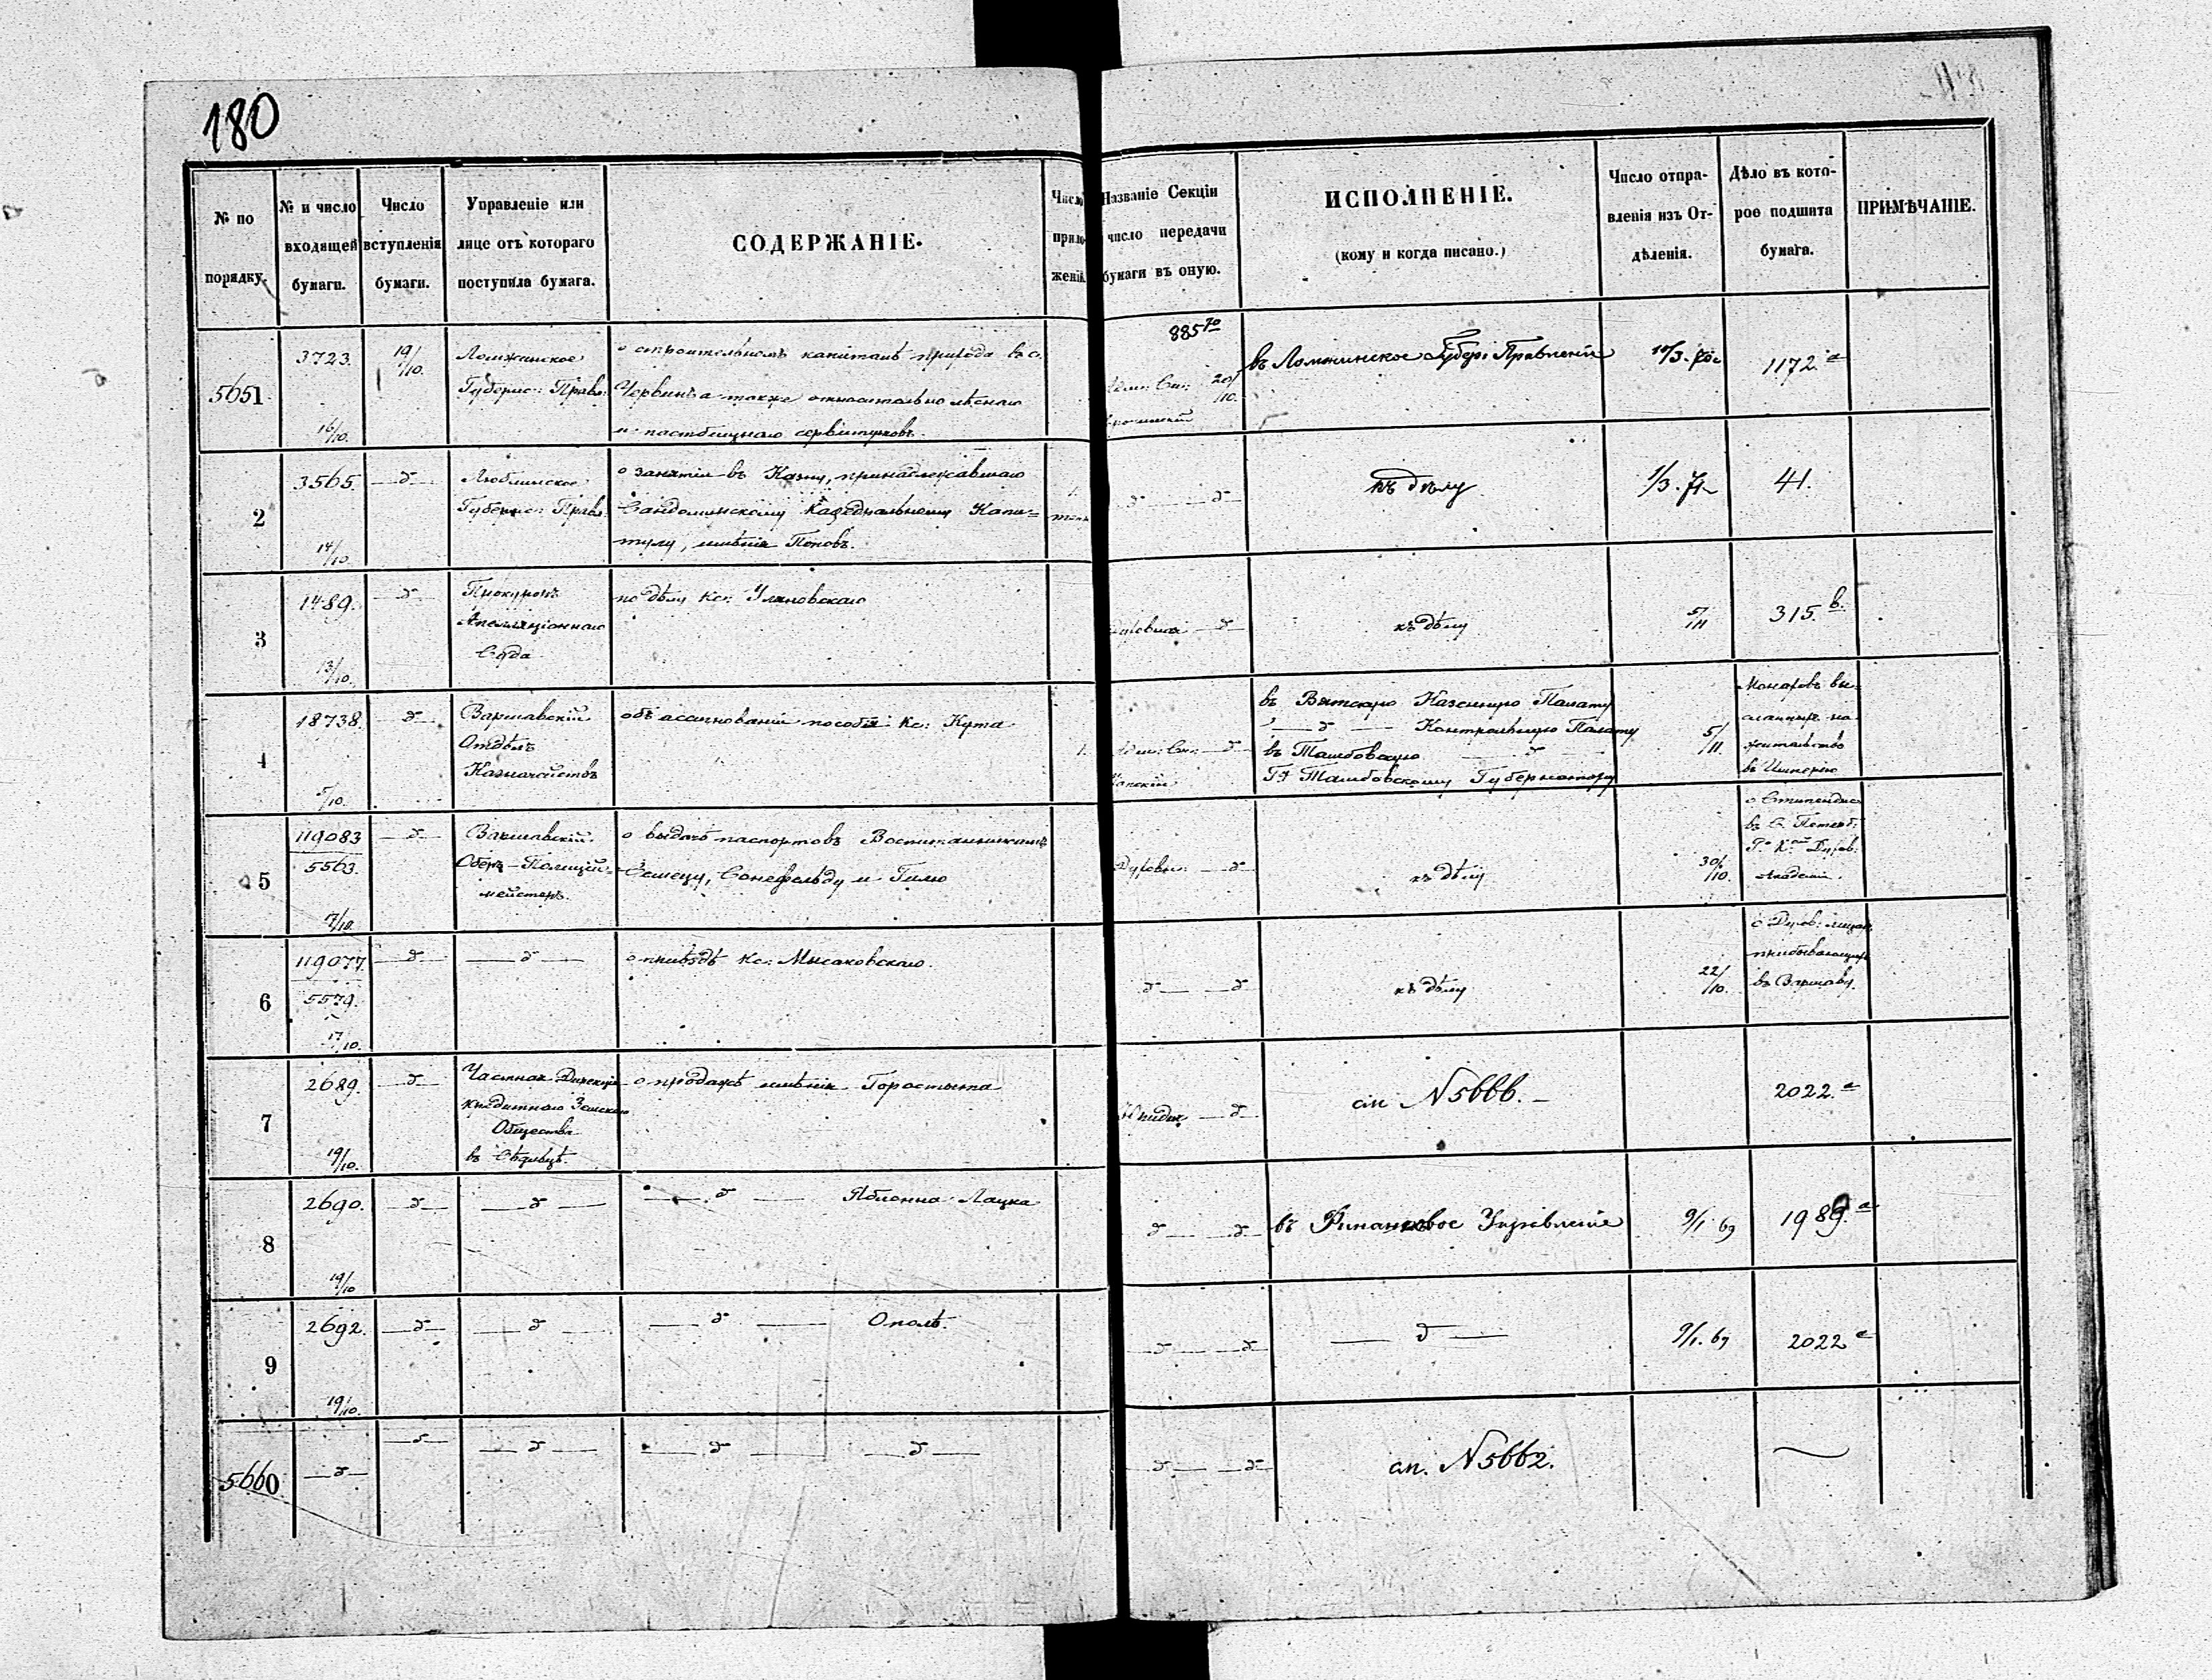 180
№ по порядку.
№ и число входящей бумаги.
Число вступленія бумаги.
Управленіе или лице отъ котораго поступила бумага.
СОДЕРЖАНІЕ.
Число прило- женій.
Названіе Секціи число передачи бумаги въ оную.
ИСПОЛНЕНІЕ.
(кому и когда писано.)
Число отпра- вленія изъ От- дѣленія.
Дѣло въ кото- рое подшита бумага.
ПРИМѢЧАНІЕ.
5651
3723.
16/10.
19/10.
Ломжинское
Губернс: Правл:
о строительномъ капиталѣ прихода въ с.
Червинъ а также относительно лѣснаго
и пастбищнаго сервитутовъ.
885 70
Адм: Сек: 20/10.
въ Ломжинское Губер: Правленіе
1172 а
2
3565.
14/10.
— д —
Люблинское
Губернс: Правл.
о занятіи въ Казну, принадлежавшаго
Сандомирскому Кафедральному Капи-
тулу, имѣнія Поповъ.
1.
д — д —
къ дѣлу
1/3. 71
41.
3
1489.
13/10.
— д —
Прокуроръ
Апелляціоннаго
Суда
по дѣлу Кс: Уляновскаго
Духовная — д —
къ дѣлу
5/11
315 в.
4
18738.
5/10.
— д —
Варшавскій
Отдѣлъ
Казначействъ
объ ассигнованіи пособія Кс: Кута
1.
Адм: Сек: — д
въ Вятскую Казенную Палату
— д — Контрольную Палату
въ Тамбовскую — д —
Г-ну Тамбовскому Губернатору
5/11.
Монаховъ вы-
сланныхъ на
жительство
въ Имперію
5
119083
5563.
7/10.
— д —
Варшавскій
Оберъ-Полицій-
мейстеръ.
о выдачѣ паспортовъ Воспитанникамъ
Сонефельду и Гилю
Духовн: — д —
къ дѣлу
30/10.
о Стипендіи
въ С. Петерб:
Р. К. Духов:
Академіи.
6
119077.
5579.
17/10.
— д —
— д —
о пріѣздѣ Кс: Мысаковскаго.
д — — д
къ дѣлу
22/10.
о Духов: лицахъ
прибывающихъ
въ Варшаву.
7
2689.
19/10.
— д —
Частная Дирекція
Кредитнаго Земскаго
Общества
въ Сѣдлецѣ.
о продажѣ имѣнія Горостыта
— д —
см N 5666. —
2022. а
8
2690.
19/10
— д —
— д —
— д — Яблонна Лацка
д — — д
въ Финансовое Управленіе
9/1 69
1989. а
9
2692.
19/10.
— д —
— д —
— д — Ополѣ.
— д — — д
— д —
9/1. 69
2022 а
5660
— д —
— д —
— д —
— д — — д —
— д — — д
см. N 5662.